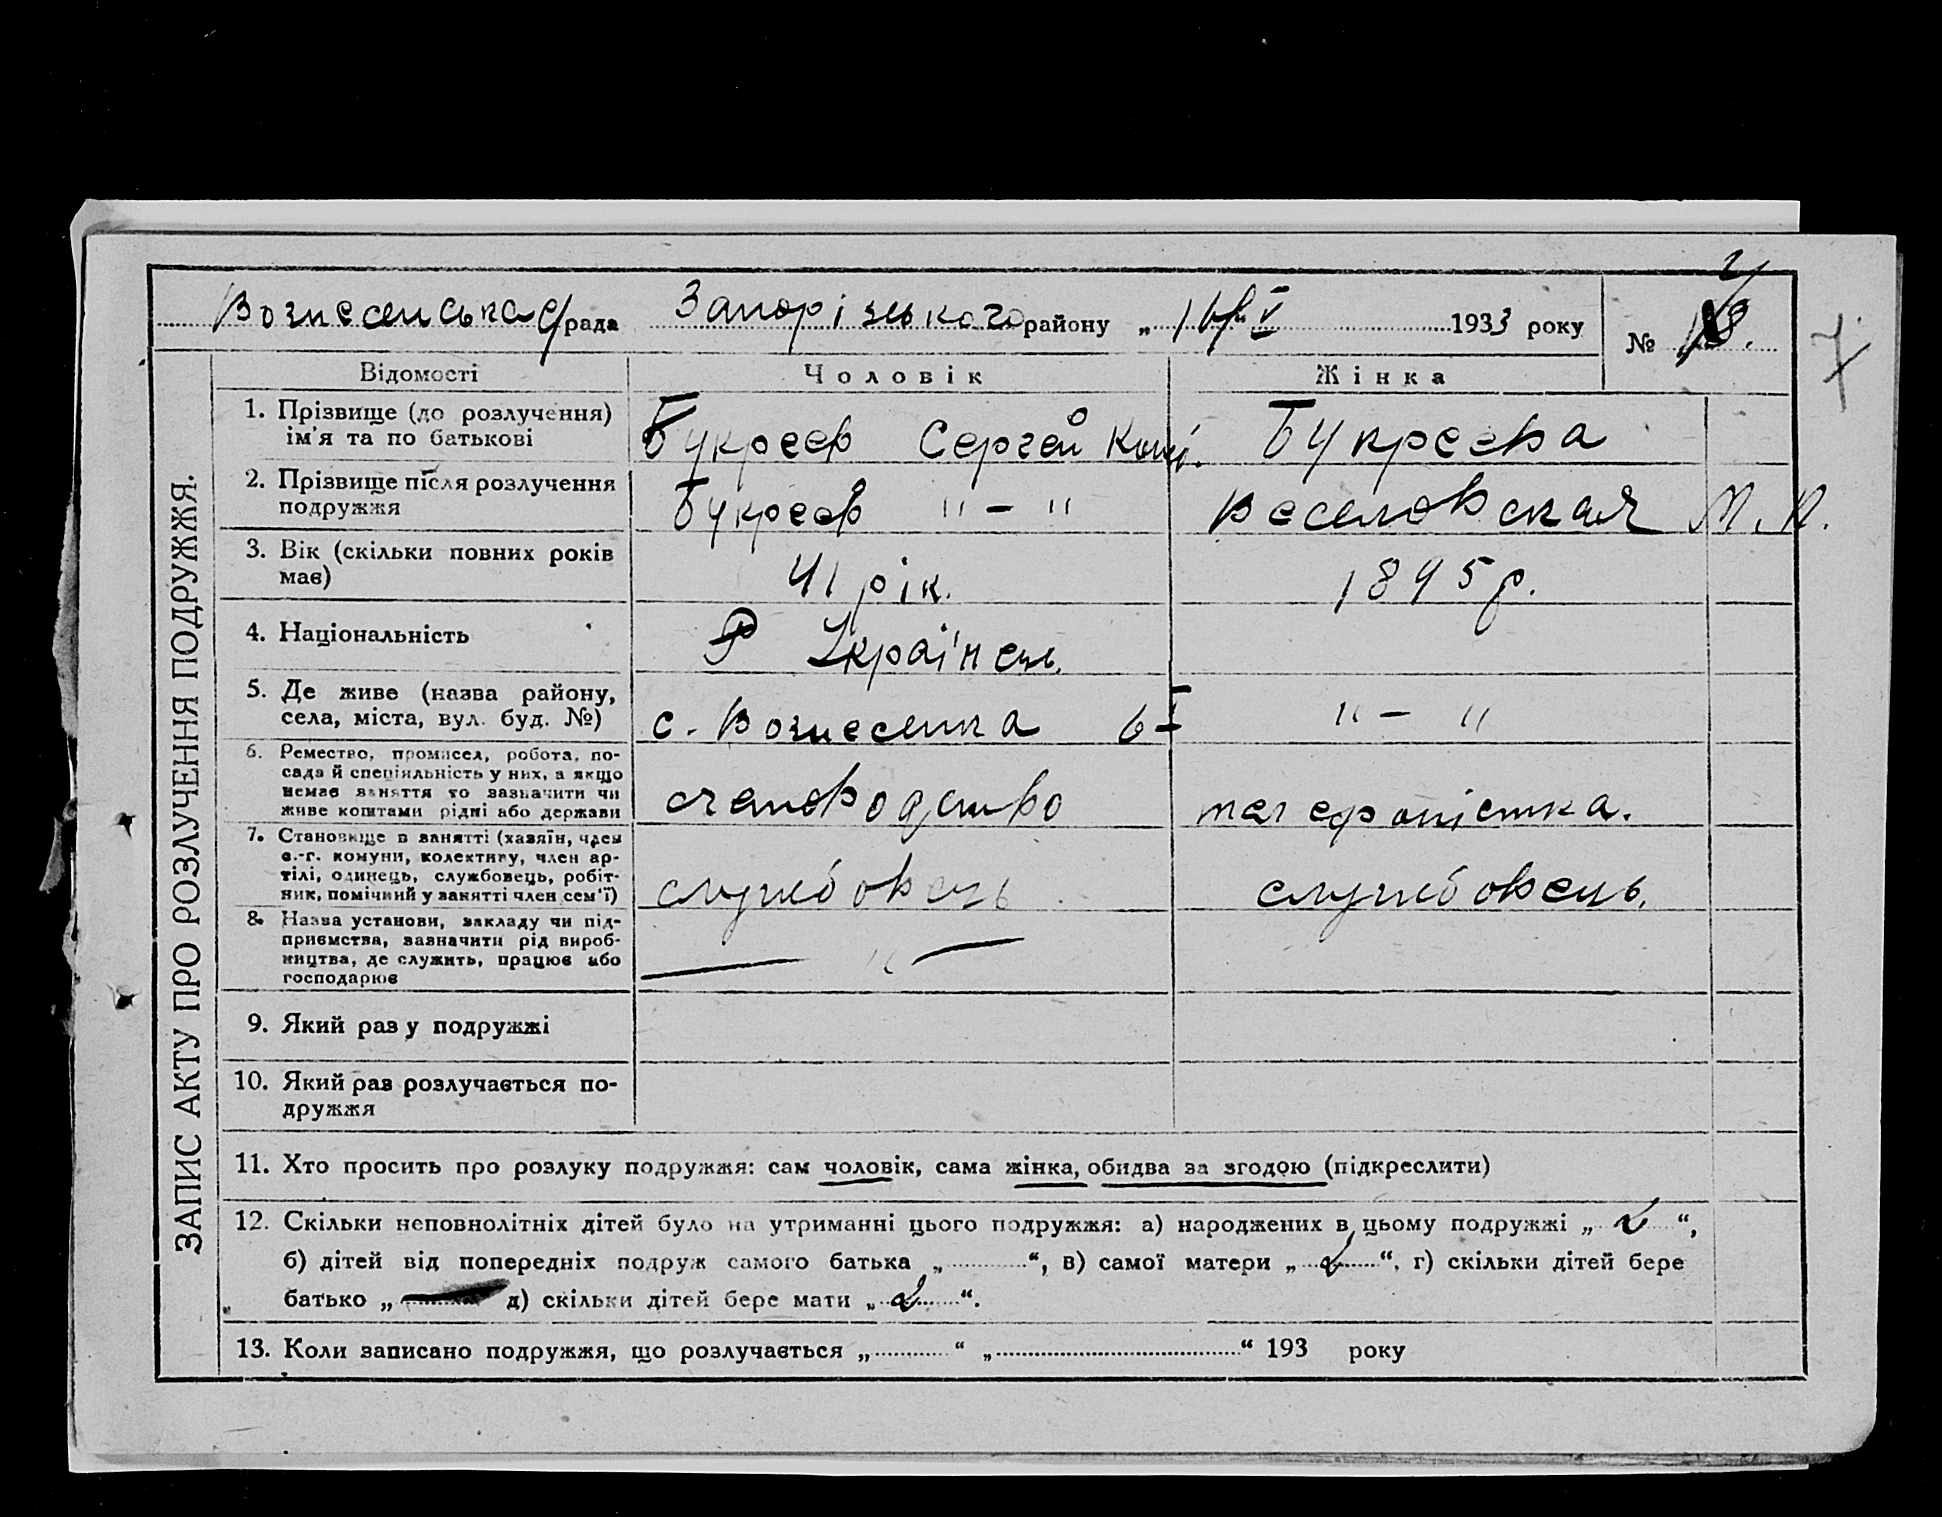 Вознесенська с/рада Запорізького району „ 16/V 1933 року
№
7.
Відомості Чоловік Жінка
1. Прізвище (до розлучення) ім'я та по батькові
Букреєв Сергей Букреєва
2. Прізвище після розлучення подружжя
Букреєв "–" Веселовская М.
3. Вік (скільки повних років має)
41 рік. 1895 р.
4. Національність
Українець.
5. Де живе (назва району, села, міста, вул. буд. №)
с. Вознесенка "–"
6. Ремество, промисел, робота, посада й спеціяльність у них, а якщо немає заняття то зазначити чи живе коштами рідні або держави
счетоводство
7. Становище в занятті (хазяїн, член с.-г. комуни, колективу, член артілі, одинець, службовець, робітник, помічний у занятті член сем'ї)
службовець службовець.
8. Назва установи, закладу чи підприємства, зазначити рід виробництва, де служить, працює або господарює
— " —
9. Який раз у подружжі
10. Який раз розлучається подружжя
11. Хто просить про розлуку подружжя: сам чоловік, сама жінка, обидва за згодою (підкреслити)
12. Скільки неповнолітніх дітей було на утриманні цього подружжя: а) народжених в цьому подружжі „ 2 “,
б) дітей від попередніх подруж самого батька „ “, в) самої матери „ 2 “, г) скільки дітей бере
батько „ д) скільки дітей бере мати „ 2 “.
13. Коли записано подружжя, що розлучається „ “ „ “ 193 року
ЗАПИС АКТУ ПРО РОЗЛУЧЕННЯ ПОДРУЖЖЯ.